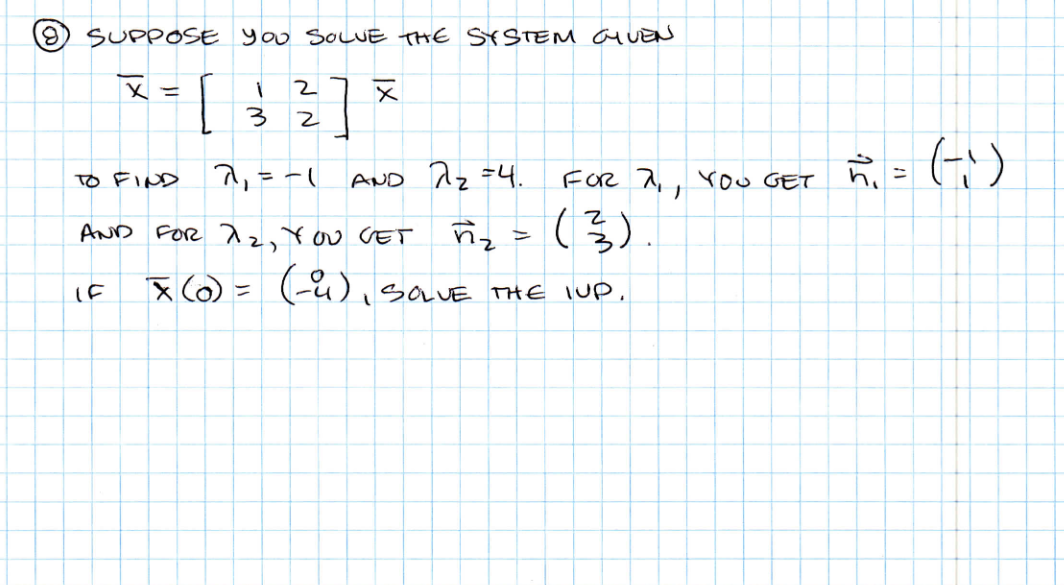 ⑧ SUPPOSE YOU SOLVE THE SYSTEM GIVEN
x̄ = [ 1 2 ; 3 2 ] x̄
TO FIND λ₁ = -1 AND λ₂ = 4. FOR λ₁, YOU GET n⃗₁ = (-1 ; 1)
AND FOR λ₂, YOU GET n⃗₂ = (2 ; 3).
IF x̄(0) = (0 ; -4), SOLVE THE IVP.